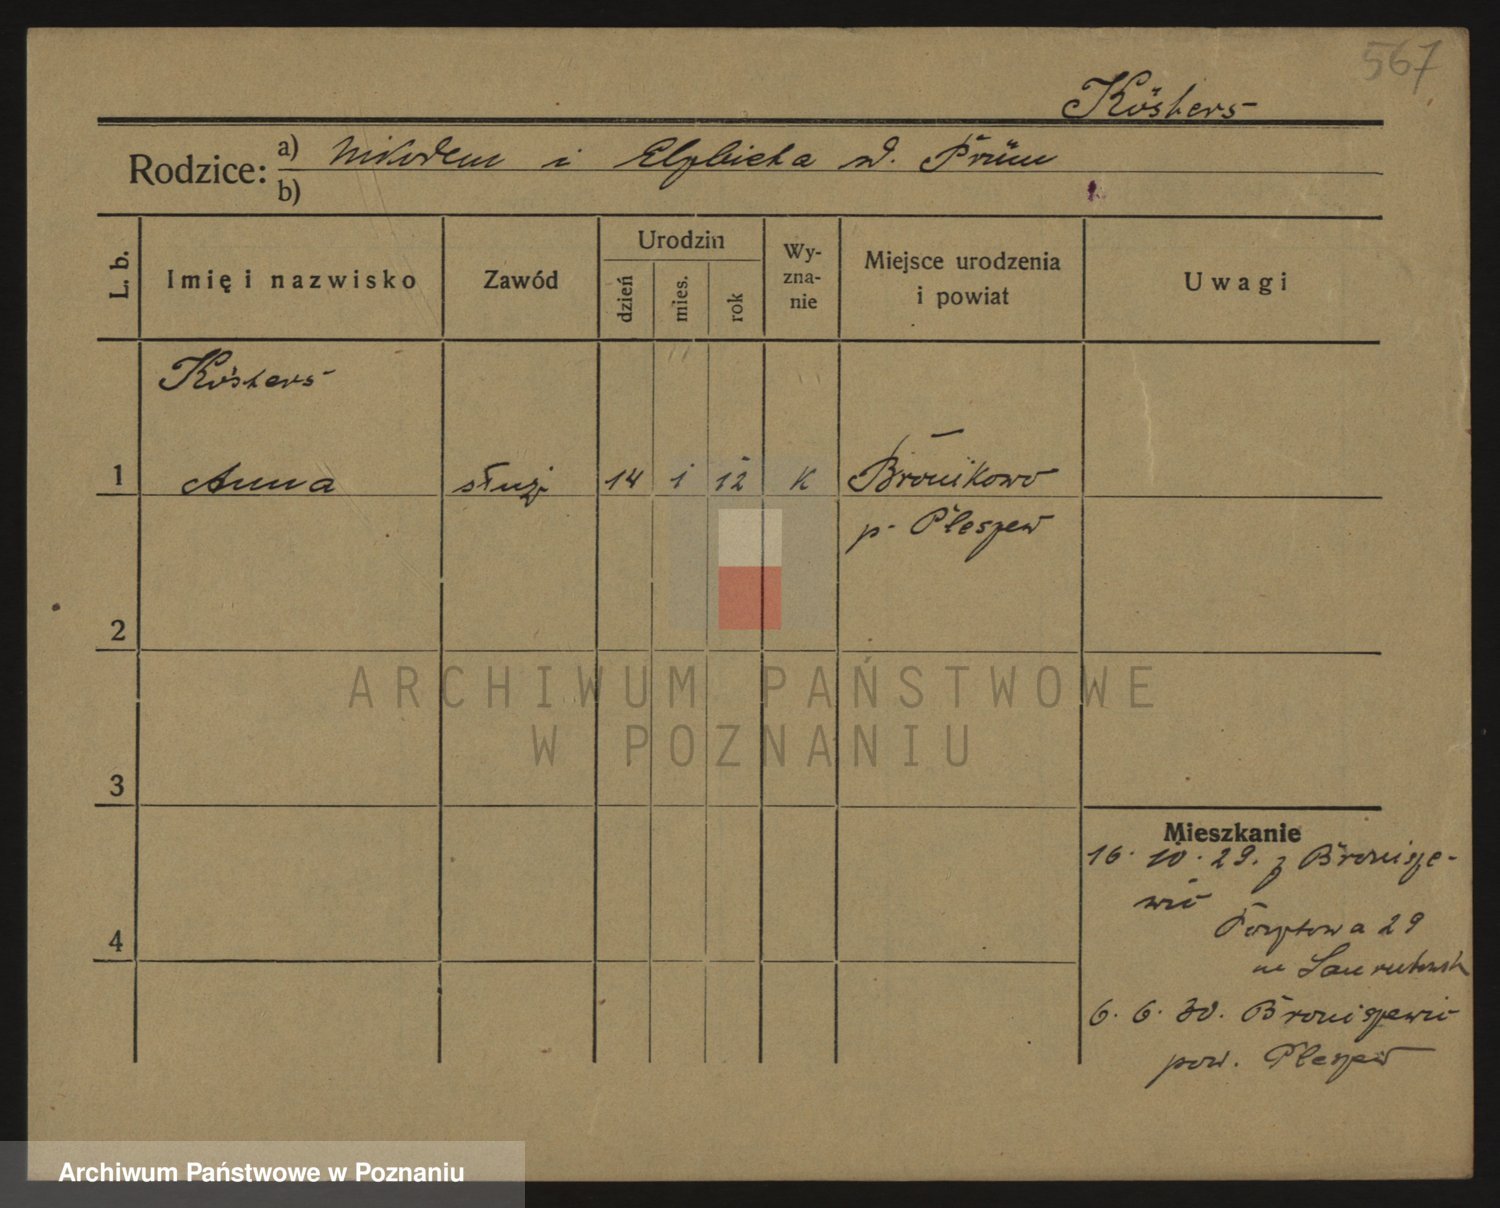 567
Kösters
Rodzice: a) Nikodem i Elżbieta Prüm
b)
L. b.
Imię i nazwisko
Zawód
Urodzin
dzień
mies.
rok
Wy-
zna-
nie
Miejsce urodzenia
i powiat
Uwagi
Kösters
1 Anna służ. 14 1 12 K Bronikowo
p. Pleszew
2
3
4
Mieszkanie
16. 10. 29. z Bronisze-
wic
29
6. 6. 30. Broniszewic
pow. Pleszew
ARCHIWUM PAŃSTWOWE
W POZNANIU
Archiwum Państwowe w Poznaniu